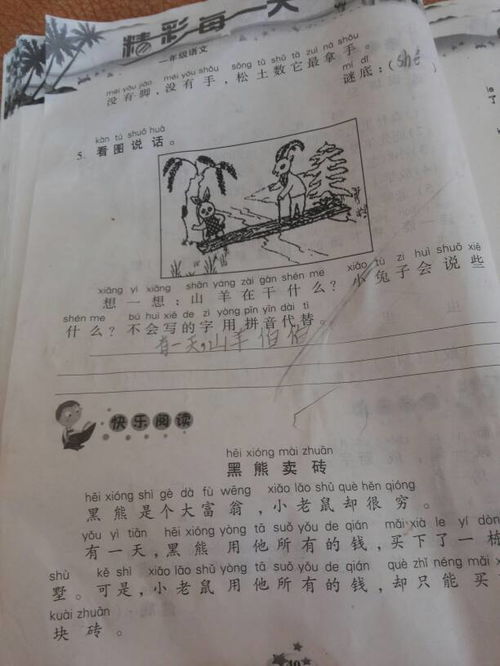 精彩每一天
一年级语文
méi yǒu jiǎo méi yǒu shǒu sōng tǔ shǔ tā zuì ná shǒu mí dǐ
没有脚，没有手，松土数它最拿手。 谜底：(shé )
kàn tú shuō huà
5. 看图说话。
xiǎng yi xiǎng shān yáng zài gàn shén me xiǎo tù zi huì shuō xiē
想一想：山羊在干什么？小兔子会说些
shén me bú huì xiě de zì yòng pīn yīn dài tì
什么？不会写的字用拼音代替。
有一天，山羊伯伯
快乐阅读
hēi xióng mài zhuān
黑熊卖砖
hēi xióng shì gè dà fù wēng xiǎo lǎo shǔ què hěn qióng
黑熊是个大富翁，小老鼠却很穷。
yǒu yì tiān hēi xióng yòng tā suǒ yǒu de qián mǎi xià le yí dòn
有一天，黑熊用他所有的钱，买下了一栋
shù kě shì xiǎo lǎo shǔ yòng tā suǒ yǒu de qián què zhǐ néng mǎi
墅。可是，小老鼠用他所有的钱，却只能买
kuài zhuān
块砖。
10